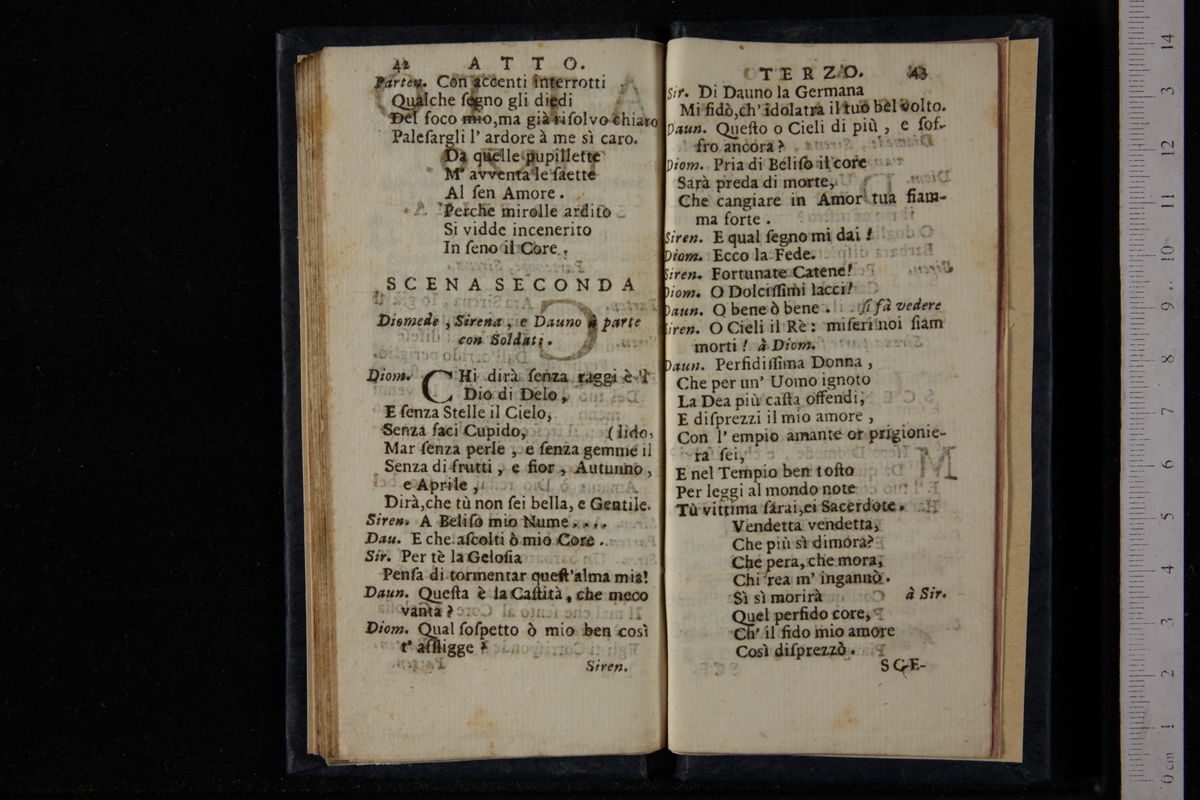 42 ATTO.
Parten. Con accenti interrotti
Qualche ſegno gli diedi
Del foco mio, ma già riſolvo chiaro
Paleſargli l' ardore à me sì caro.
Da quelle pupillette
M' avventa le ſaette
Al ſen Amore.
Perche mirolle ardito
Si vidde incenerito
In ſeno il Core.
SCENA SECONDA
Diomede, Sirena, e Dauno à parte
con Soldati.
Diom. CHi dirà ſenza raggi è 'l
Dio di Delo,
E ſenza Stelle il Cielo,
Senza faci Cupido, (lido,
Mar ſenza perle, e ſenza gemme il
Senza di frutti, e fior, Autunno,
e Aprile,
Dirà, che tù non ſei bella, e Gentile.
Siren. A Beliſo mio Nume....
Dau. E che aſcolti ò mio Core.
Sir. Per tè la Geloſia
Penſa di tormentar queſt'alma mia!
Daun. Queſta è la Caſtità, che meco
vanta?
Diom. Qual ſoſpetto ò mio ben così
t' affligge?
Siren.
TERZO. 43
Sir. Di Dauno la Germana
Mi fidò, ch' idolatra il tuo bel volto.
Daun. Queſto o Cieli di più, e ſof-
fro ancora?
Diom. Pria di Beliſo il core
Sarà preda di morte,
Che cangiare in Amor tua fiam-
ma forte.
Siren. E qual ſegno mi dai!
Diom. Ecco la Fede.
Siren. Fortunate Catene!
Diom. O Dolciſſimi lacci!
Daun. O bene ò bene. ſi fà vedere
Siren. O Cieli il Rè: miſeri noi ſiam
morti! à Diom.
Daun. Perfidiſſima Donna,
Che per un' Uomo ignoto
La Dea più caſta offendi,
E diſprezzi il mio amore,
Con l' empio amante or prigionie-
ra ſei,
E nel Tempio ben toſto
Per leggi al mondo note
Tù vittima ſarai, ei Sacerdote.
Vendetta vendetta,
Che più sì dimora?
Che pera, che mora,
Chi rea m' ingannò.
Sì sì morirà à Sir.
Quel perfido core,
Ch' il fido mio amore
Così diſprezzò.
SCE-
14
13
12
11
10
9
8
7
6
5
4
3
2
1
0 cm